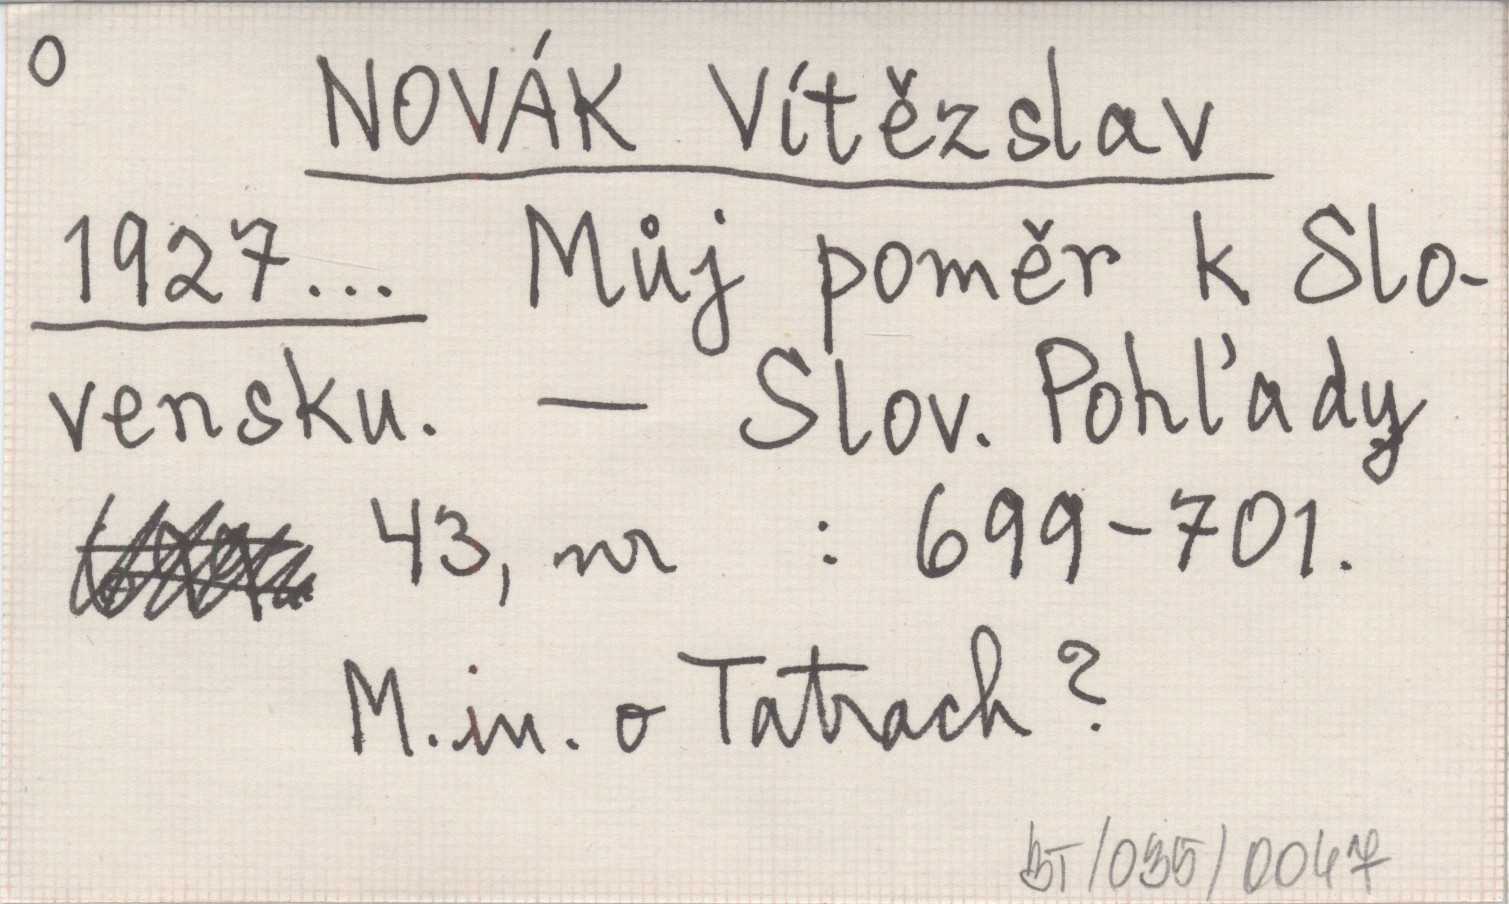 O
NOVÁK Vítězslav
1927... Můj poměr k Slo-
vensku. — Slov. Pohľady
43, nr : 699-701.
M.in. o Tatrach?
BT/035/0047